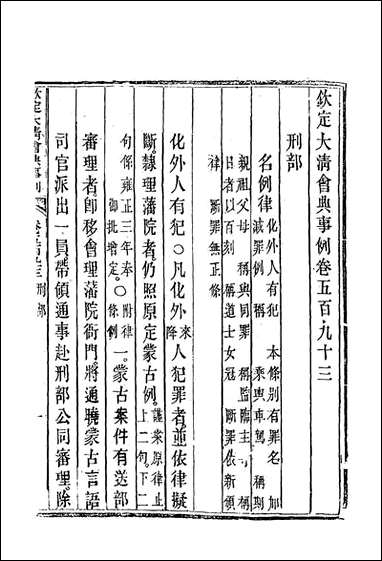 欽定大清會典事例卷五百九十三
刑部
名例律
化外人有犯 本條別有罪名 加
減罪例 稱乘輿車駕 稱期
親祖父母 稱與同罪 稱監臨主守 稱
日者以百刻 稱道士女冠 斷罪依新頒
律 斷罪無正條
化外人有犯〇凡化外來降人犯罪者並依律擬
斷隸理藩院者仍照原定蒙古例謹案原律止上二句下二
句係雍正三年奉御批增定〇附律條例一蒙古案件有送部
審理者卽移會理藩院衙門將通曉蒙古言語
司官派出一員帶領通事赴刑部公同審理除
欽定大清會典事例 刑部 一